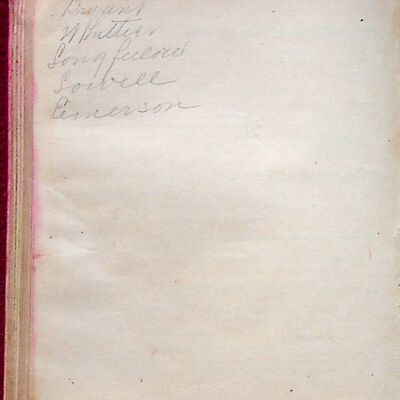 Bryant
Whittier
Longfellow
Lowell
Emerson